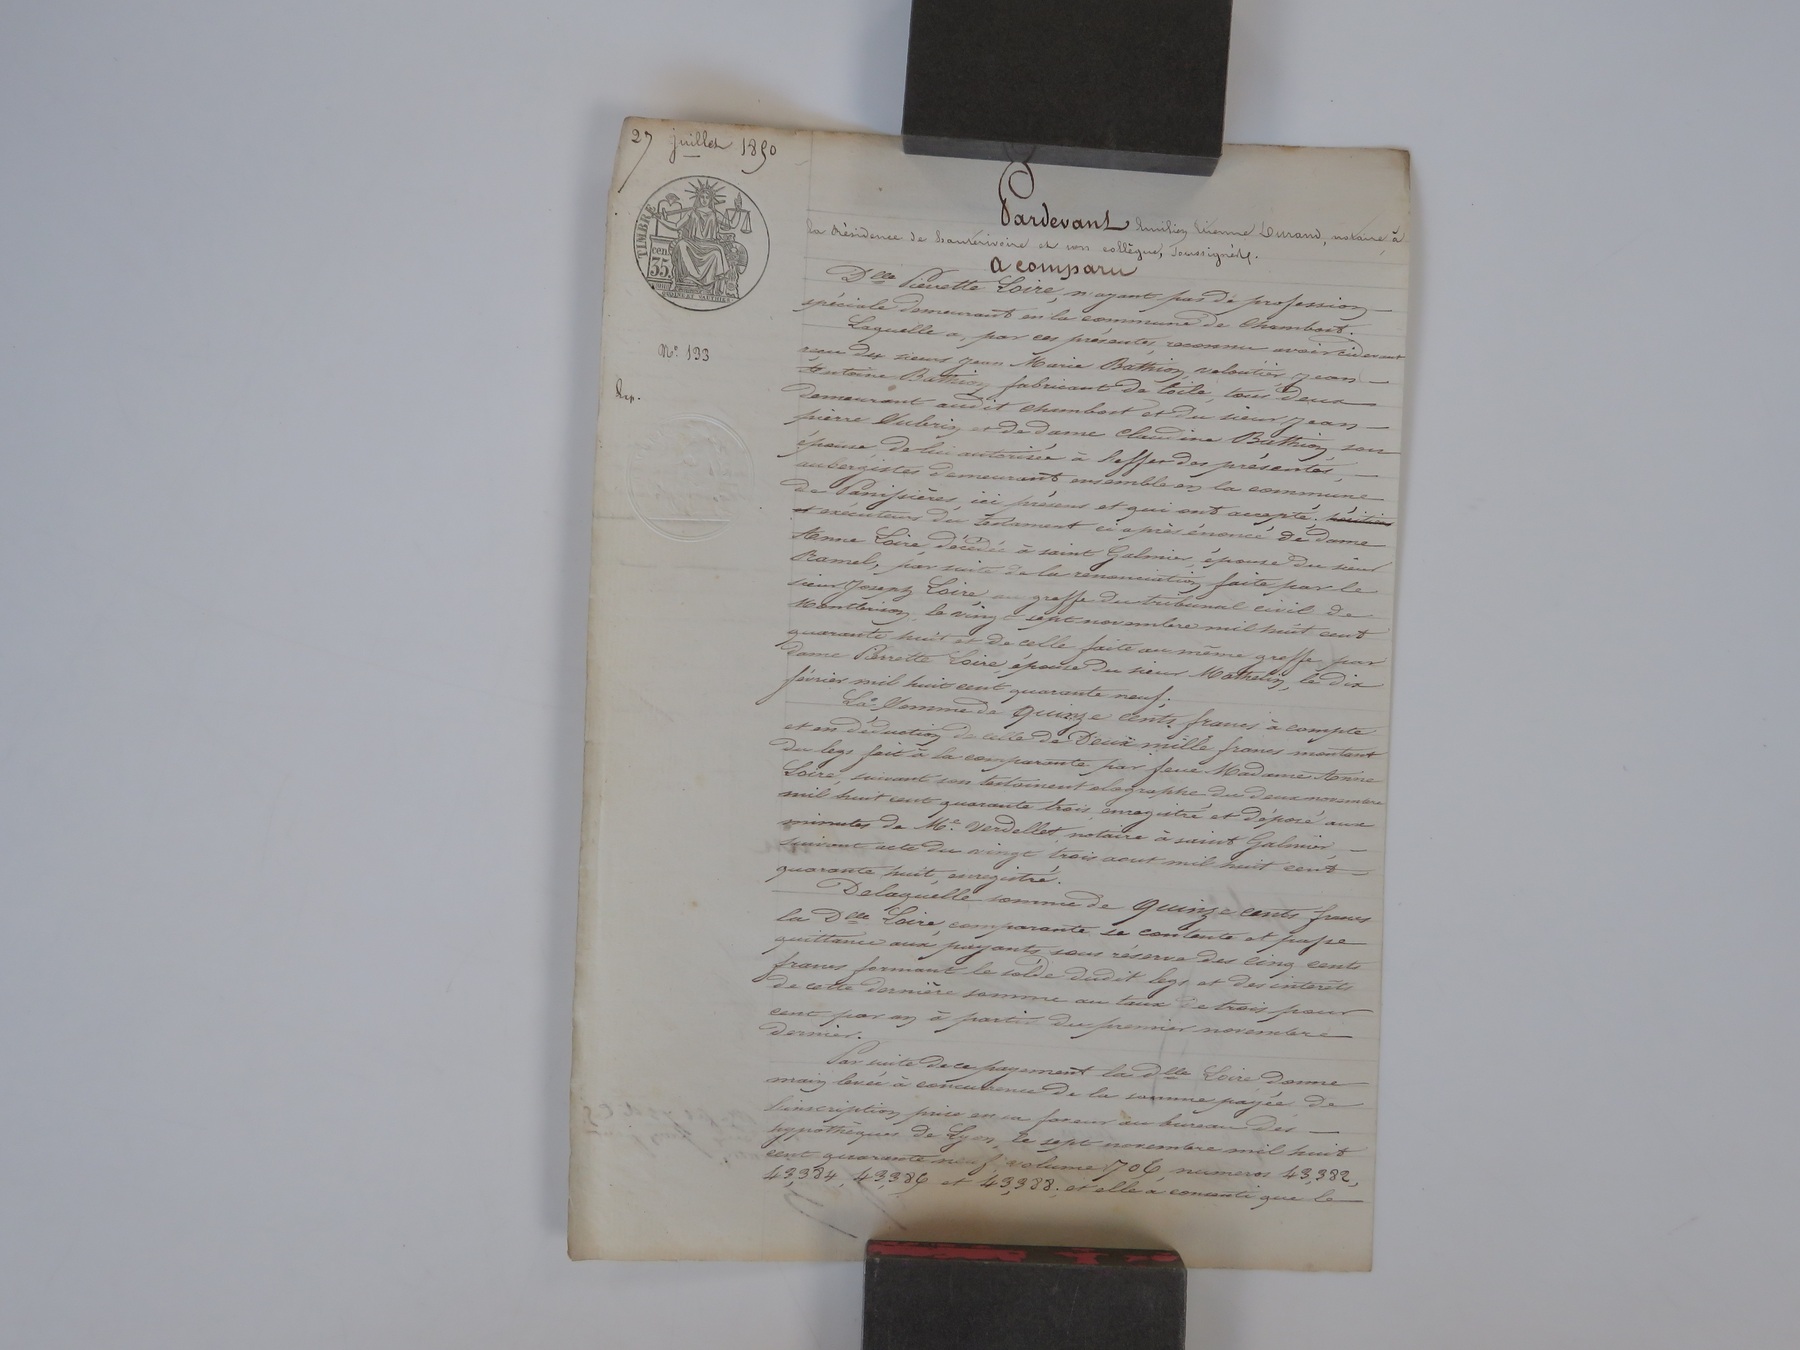 27 juillet 1850
TIMBRE
cen
35.
N.° 133
Rep.
Pardevant Emilien Etienne Durand, notaire à
la Résidence de hauterivoire et son collègue, soussignés.
a comparu
D.lle Pierrette Loire, n'ayant pas de profession
spéciale demeurant en la commune de Chambost.
Laquelle a, par ces présentes, reconnu avoir cidevant
reçu des sieurs Jean Marie Bathion, veloutier, Jean
Antoine Bathion fabricant de toile, tous deux
demeurant audit Chambost et du sieur Jean
pierre Subrin et de dame Claudine Bathion, son
épouse de lui autorisée à l'effet des présentes,
aubergistes demeurant ensemble en la commune
de Panissières, ici présens et qui ont accepté. héritiers
et exécuteurs du testament ci après énoncé de dame
Anne Loire décédée à saint Galmier, épouse du sieur
Ramel, par suite de la renonciation faite par le
sieur Joseph Loire au greffe du tribunal civil de
Montbrison, le vingt sept novembre mil huit cent
quarante huit et de celle faite au même greffe par
dame Perrette Loire, épouse du sieur Mathelin, le dix
février mil huit cent quarante neuf.
La Somme de Quinze cents francs à compte
et en déduction de celle de Deux mille francs montant
du legs fait à la comparante par feue Madame Anne
Loire, suivant son testament olographe du deux novembre
mil huit cent quarante trois, enregistré et déposé aux
minutes de M.e Verdellet, notaire à saint Galmier,
suivant acte du vingt trois aout mil huit cent
quarante huit, enregistré.
De laquelle somme de Quinze cents francs
la D.lle Loire, comparante se contente et passe
quittance aux payants, sous réserve des cinq cents
francs formant le solde dudit legs et des intérêts
de cette dernière somme au taux de trois pour
cent par an à partir du premier novembre
dernier.
Par suite de ce payement la d.lle Loire donne
main levée à concurrence de la somme payée de
l'inscription prise en sa faveur au bureau des
hypothèques de Lyon, le sept novembre mil huit
cent quarante neuf, volume 706, numéros 43,382,
43,384, 43,386 et 43,388. et elle a consenti que le